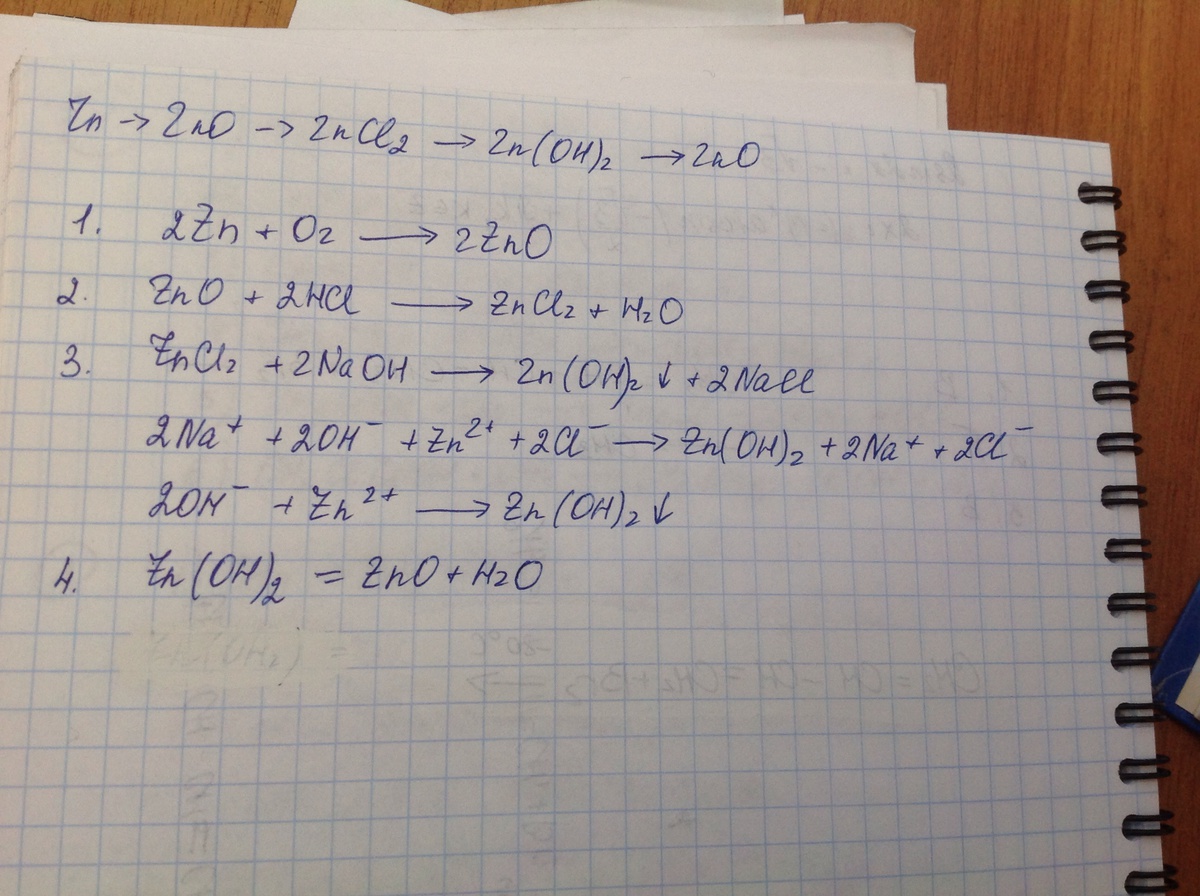 Zn → ZnO → ZnCl₂ → Zn(OH)₂ → ZnO
1. 2Zn + O₂ ⟶ 2ZnO
2. ZnO + 2HCl ⟶ ZnCl₂ + H₂O
3. ZnCl₂ + 2NaOH ⟶ Zn(OH)₂↓ + 2NaCl
2Na⁺ + 2OH⁻ + Zn²⁺ + 2Cl⁻ ⟶ Zn(OH)₂ + 2Na⁺ + 2Cl⁻
2OH⁻ + Zn²⁺ ⟶ Zn(OH)₂↓
4. Zn(OH)₂ = ZnO + H₂O